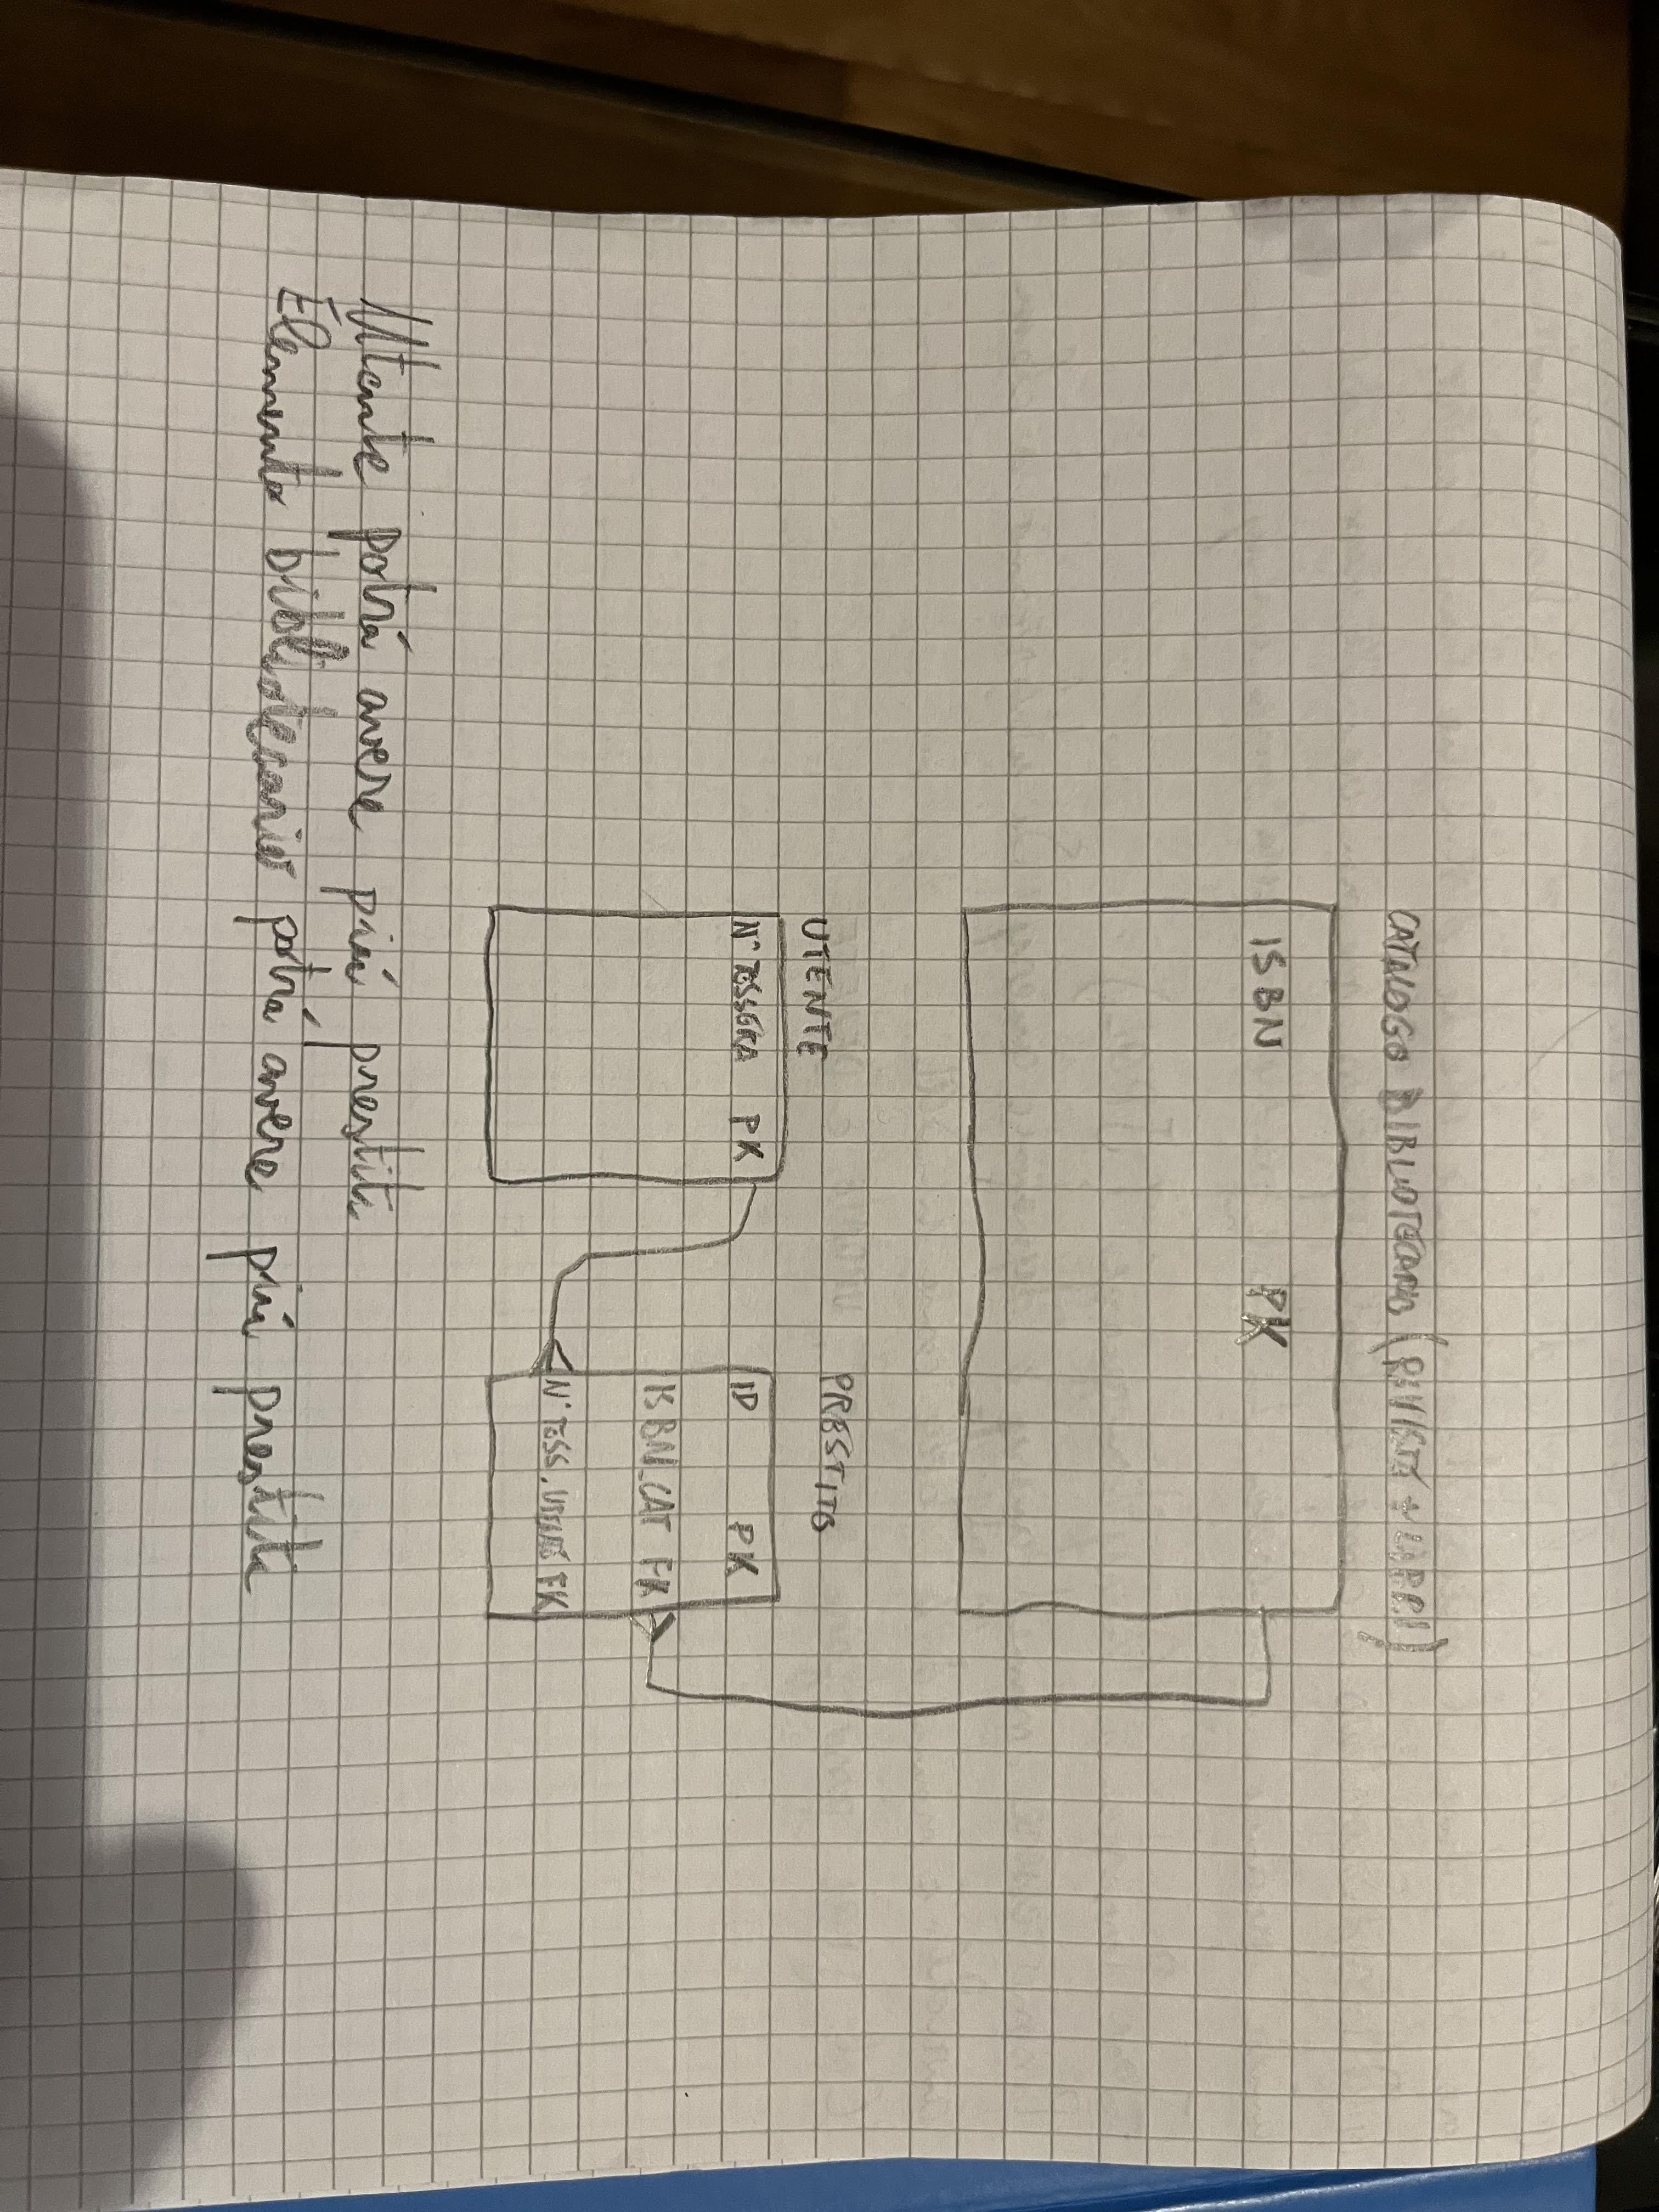 CATALOGO BIBLIOTECARIO (RIVISTE + LIBRI)
ISBN PK
UTENTE
N° TESSERA PK
PRESTITO
ID PK
ISBN_CAT FK
N° TESS. UTENTE FK
Utente potrá avere piú prestiti
Elemento bibliotecario potrá avere piú prestiti